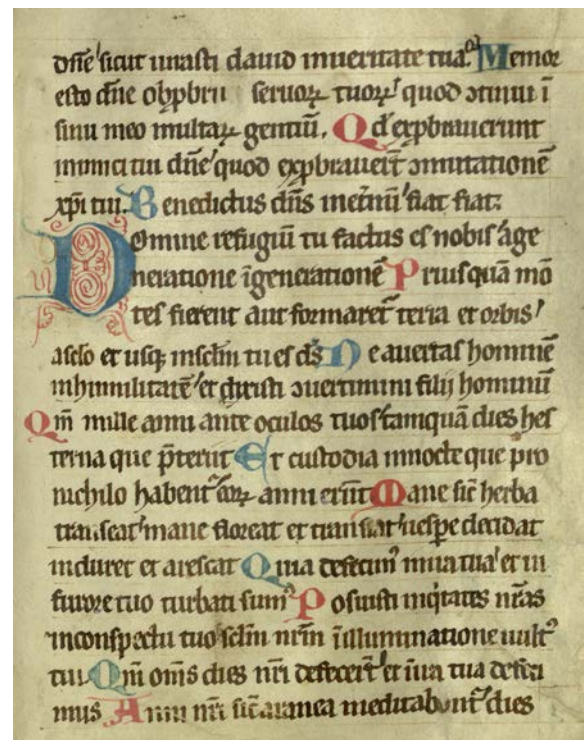 dñe sicut iurasti dauid in ueritate tua. Memor
esto dñe obpbrii seruoꝝ tuoꝝ quod ↄtinui ī
sinu meo multaꝝ gentiū. Qd' expbrauerunt
inimici tui dñe quod expbrauerūt ↄmutationē
xp̄i tui. Benedictus dñs ineternū fiat fiat:
Domine refugiū tu factus es nobis a ge
neratione ī generationē Priusquā mō
tes fierent aut formaret̃ terra et orbis
a sclo et usqꝫ in sclm tu es ds Ne auertas hominē
in humilitatē et dixisti ↄuertimini filij hominū
Qm̄ mille anni ante oculos tuos tamquā dies hes
terna que p̄teriit Et custodia in nocte que pro
nichilo habent̃ eoꝝ anni erūt Mane sic̄ herba
transeat mane floreat et transeat uespe decidat
induret et arescat Quia defecimꝰ in ira tua et in
furore tuo turbati sumꝰ Posuisti iniq̇tates nr̄as
in conspectu tuo sclm nrm̄ ī illuminatione uultꝰ
tui Qm̄ om̄s dies nr̄i defecer̄t et ī ira tua defeci
mus Anni nr̄i sic̄ aranea meditabunt̃ dies